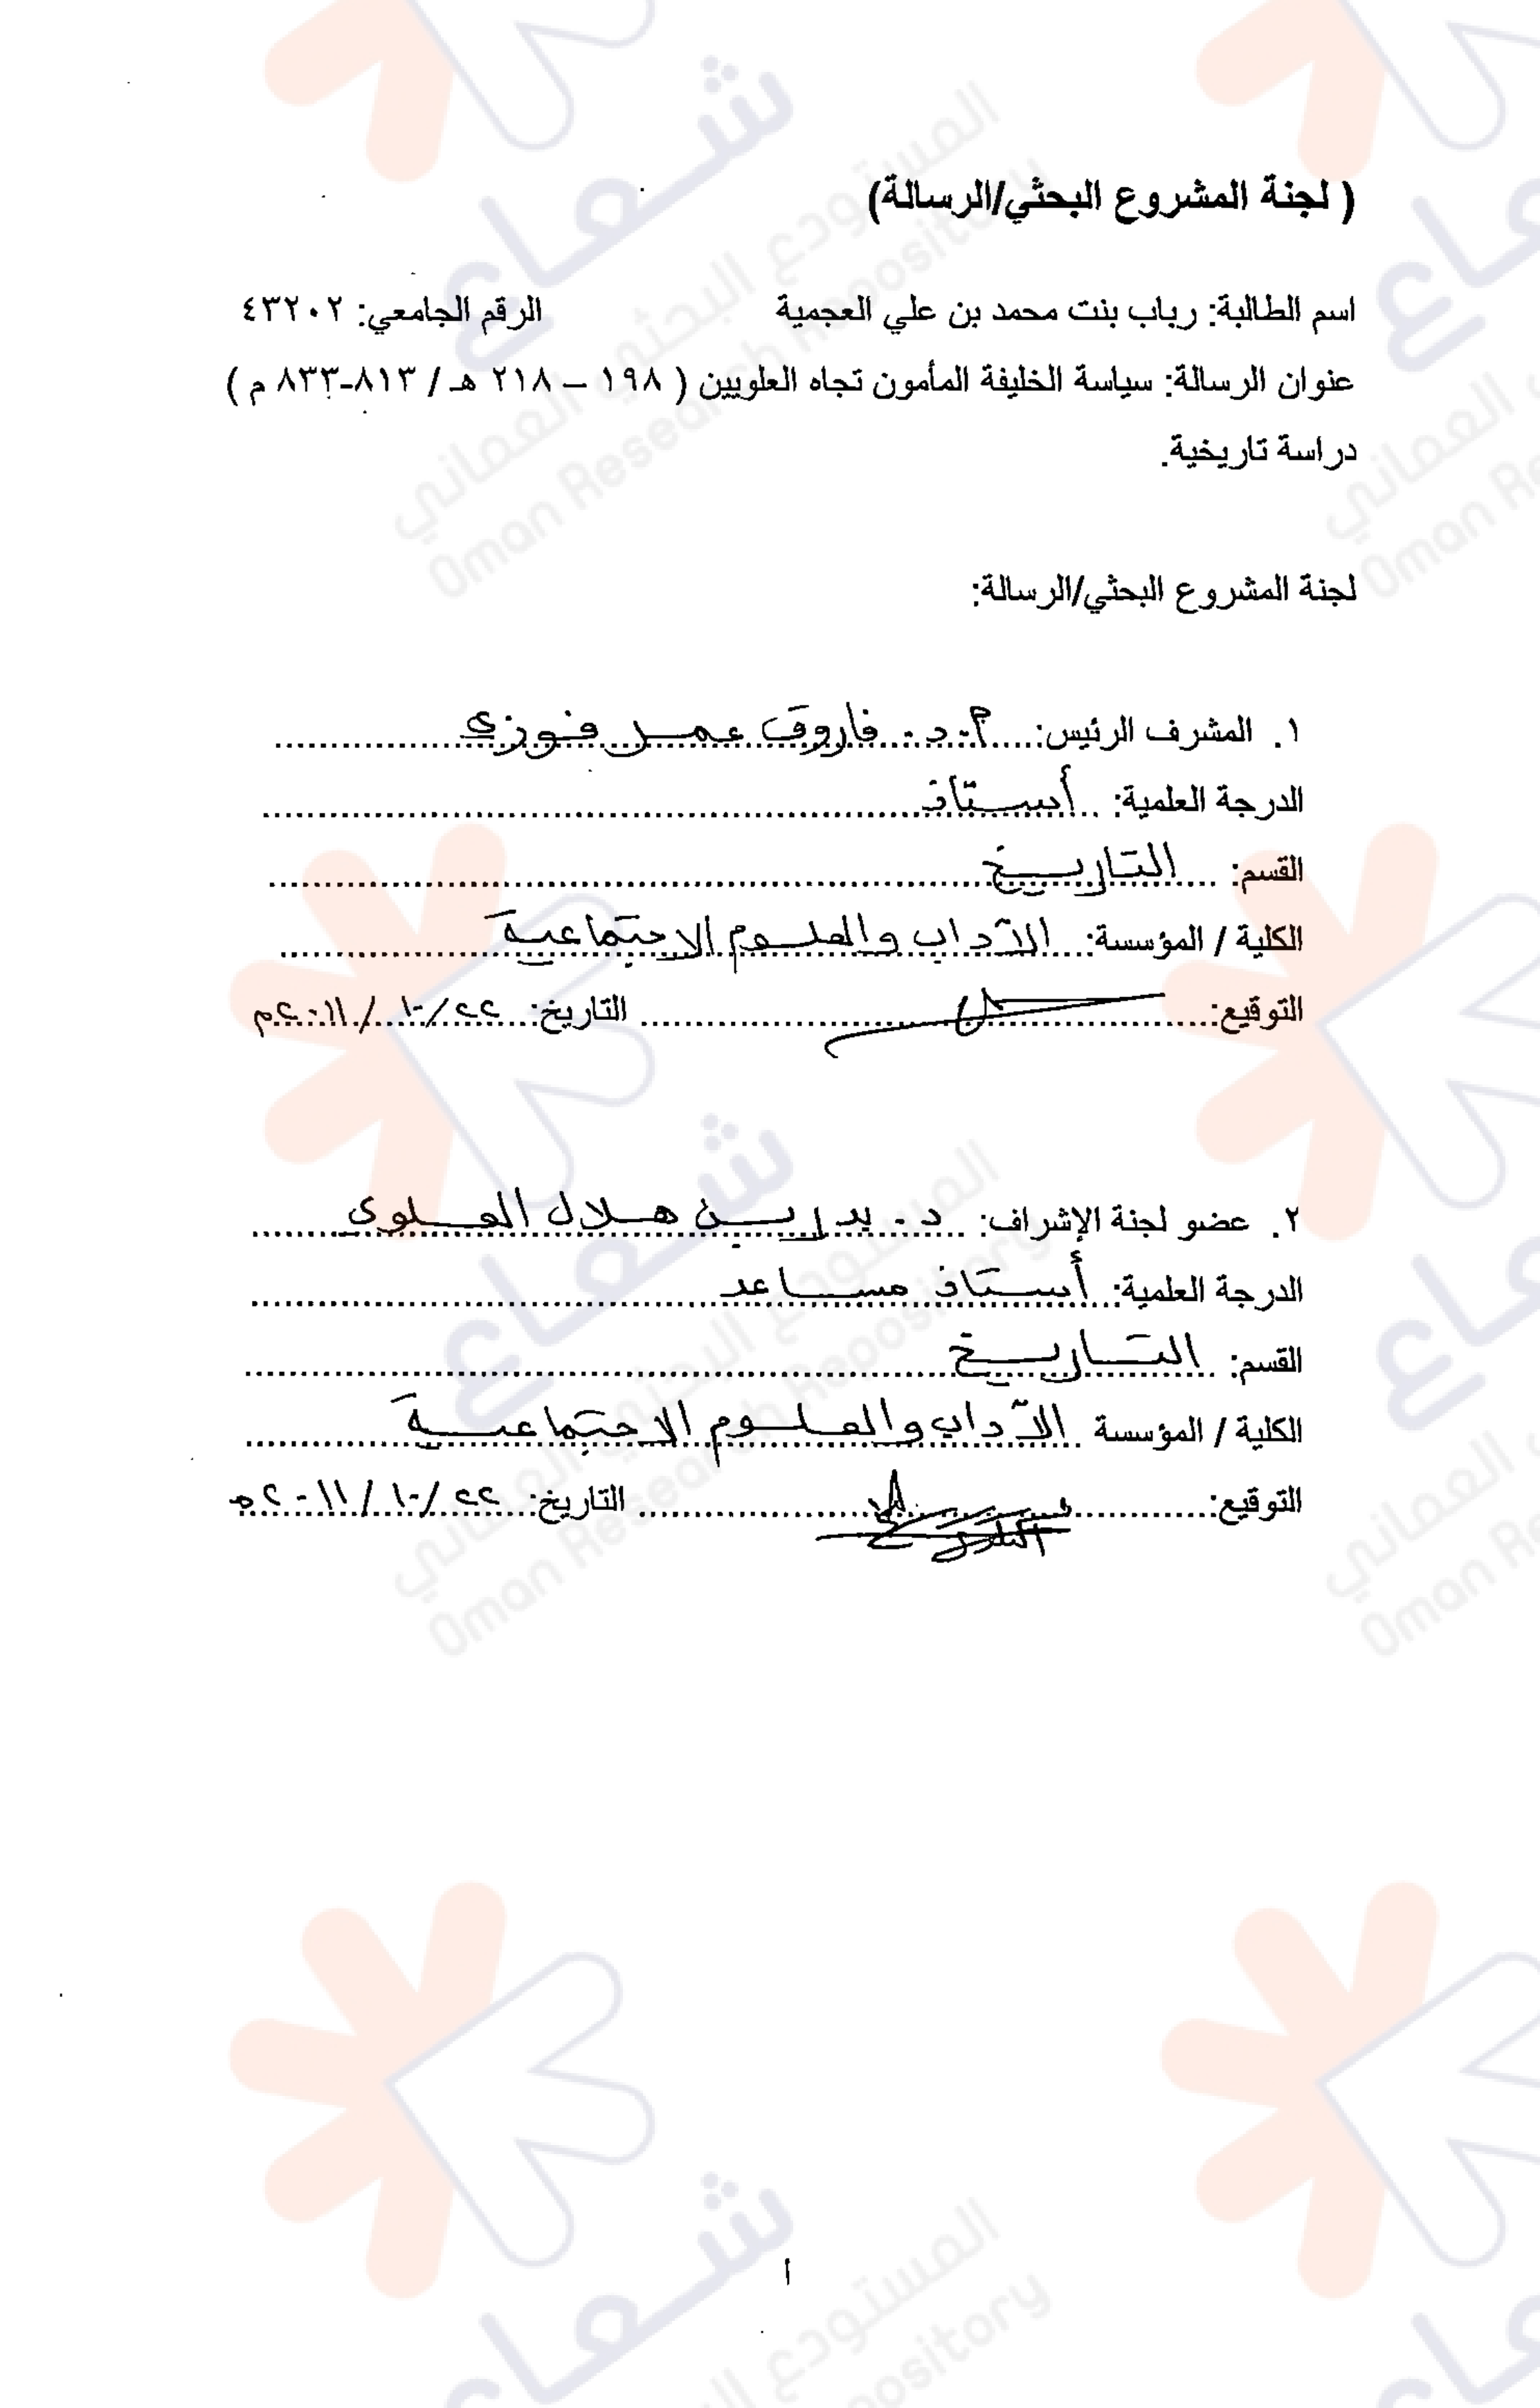 ( لجنة المشروع البحثي/الرسالة)
اسم الطالبة: رباب بنت محمد بن علي العجمية الرقم الجامعي: ٤٣٢٠٢
عنوان الرسالة: سياسة الخليفة المأمون تجاه العلويين ( ١٩٨ – ٢١٨ هـ / ٨١٣-٨٣٣ م )
دراسة تاريخية.
لجنة المشروع البحثي/الرسالة:
١. المشرف الرئيس: أ.د. فاروق عمر فوزي
الدرجة العلمية: أستاذ
القسم: التاريخ
الكلية / المؤسسة: الآداب والعلوم الاجتماعية
التوقيع: التاريخ: ٢٢/١٠/٢٠١١م
٢. عضو لجنة الإشراف: د. بدر بن هلال العلوي
الدرجة العلمية: أستاذ مساعد
القسم: التاريخ
الكلية / المؤسسة الآداب والعلوم الاجتماعية
التوقيع: التاريخ: ٢٢/١٠/٢٠١١م
أ
شعاع
المستودع البحثي العماني
Oman Research Repository